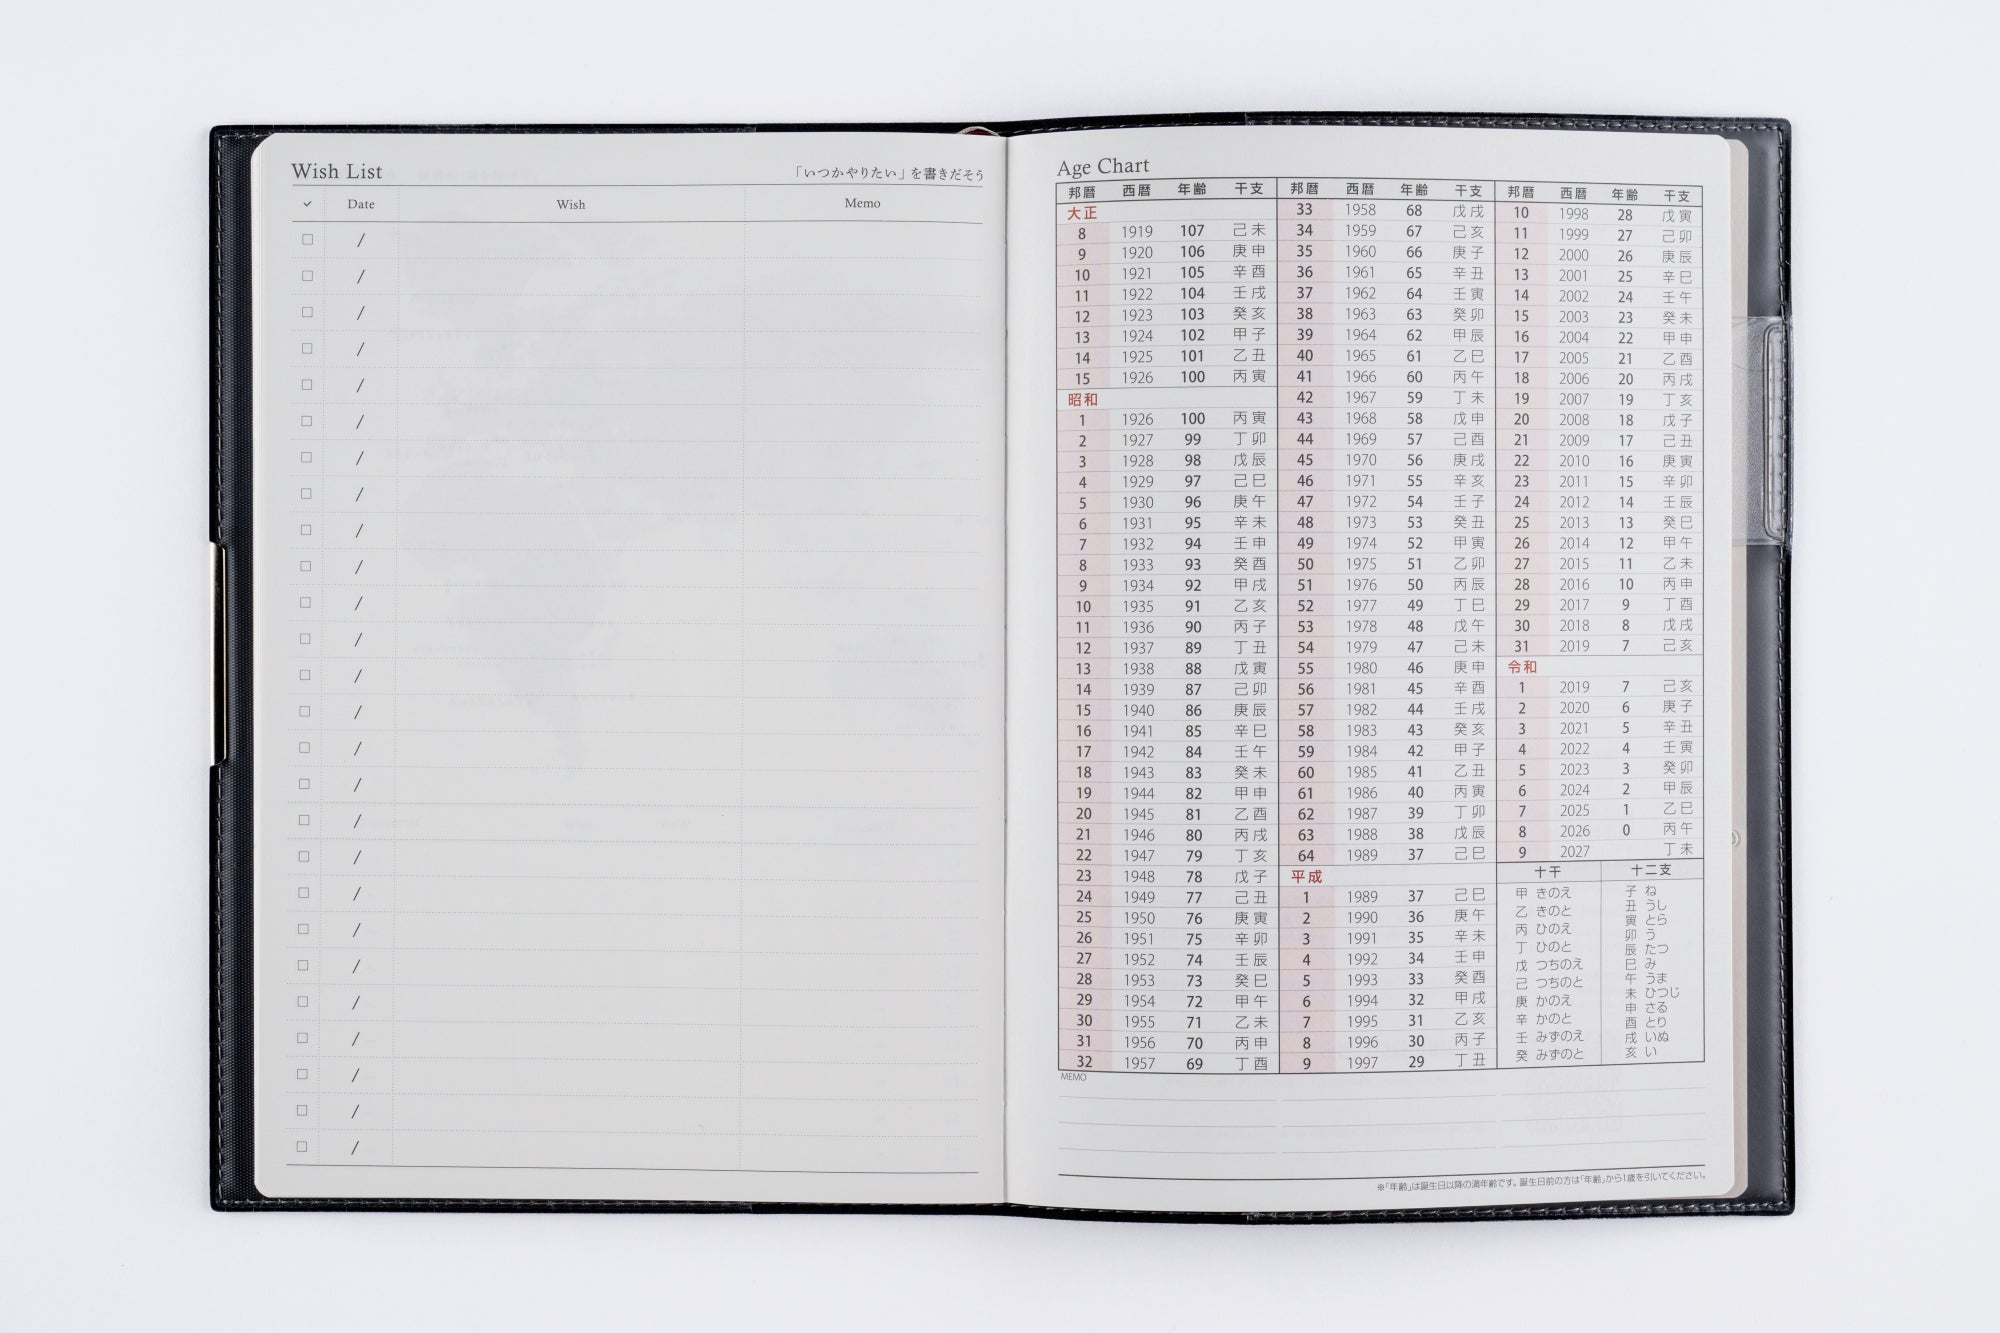 Wish List
「いつかやりたい」を書きだそう
✓ Date Wish Memo
□ /
□ /
□ /
□ /
□ /
□ /
□ /
□ /
□ /
□ /
□ /
□ /
□ /
□ /
□ /
□ /
□ /
□ /
□ /
□ /
□ /
□ /
□ /
□ /
□ /
□ /
Age Chart
邦暦 西暦 年齢 干支
大正
8 1919 107 己未
9 1920 106 庚申
10 1921 105 辛酉
11 1922 104 壬戌
12 1923 103 癸亥
13 1924 102 甲子
14 1925 101 乙丑
15 1926 100 丙寅
昭和
1 1926 100 丙寅
2 1927 99 丁卯
3 1928 98 戊辰
4 1929 97 己巳
5 1930 96 庚午
6 1931 95 辛未
7 1932 94 壬申
8 1933 93 癸酉
9 1934 92 甲戌
10 1935 91 乙亥
11 1936 90 丙子
12 1937 89 丁丑
13 1938 88 戊寅
14 1939 87 己卯
15 1940 86 庚辰
16 1941 85 辛巳
17 1942 84 壬午
18 1943 83 癸未
19 1944 82 甲申
20 1945 81 乙酉
21 1946 80 丙戌
22 1947 79 丁亥
23 1948 78 戊子
24 1949 77 己丑
25 1950 76 庚寅
26 1951 75 辛卯
27 1952 74 壬辰
28 1953 73 癸巳
29 1954 72 甲午
30 1955 71 乙未
31 1956 70 丙申
32 1957 69 丁酉
邦暦 西暦 年齢 干支
33 1958 68 戊戌
34 1959 67 己亥
35 1960 66 庚子
36 1961 65 辛丑
37 1962 64 壬寅
38 1963 63 癸卯
39 1964 62 甲辰
40 1965 61 乙巳
41 1966 60 丙午
42 1967 59 丁未
43 1968 58 戊申
44 1969 57 己酉
45 1970 56 庚戌
46 1971 55 辛亥
47 1972 54 壬子
48 1973 53 癸丑
49 1974 52 甲寅
50 1975 51 乙卯
51 1976 50 丙辰
52 1977 49 丁巳
53 1978 48 戊午
54 1979 47 己未
55 1980 46 庚申
56 1981 45 辛酉
57 1982 44 壬戌
58 1983 43 癸亥
59 1984 42 甲子
60 1985 41 乙丑
61 1986 40 丙寅
62 1987 39 丁卯
63 1988 38 戊辰
64 1989 37 己巳
平成
1 1989 37 己巳
2 1990 36 庚午
3 1991 35 辛未
4 1992 34 壬申
5 1993 33 癸酉
6 1994 32 甲戌
7 1995 31 乙亥
8 1996 30 丙子
9 1997 29 丁丑
邦暦 西暦 年齢 干支
10 1998 28 戊寅
11 1999 27 己卯
12 2000 26 庚辰
13 2001 25 辛巳
14 2002 24 壬午
15 2003 23 癸未
16 2004 22 甲申
17 2005 21 乙酉
18 2006 20 丙戌
19 2007 19 丁亥
20 2008 18 戊子
21 2009 17 己丑
22 2010 16 庚寅
23 2011 15 辛卯
24 2012 14 壬辰
25 2013 13 癸巳
26 2014 12 甲午
27 2015 11 乙未
28 2016 10 丙申
29 2017 9 丁酉
30 2018 8 戊戌
31 2019 7 己亥
令和
1 2019 7 己亥
2 2020 6 庚子
3 2021 5 辛丑
4 2022 4 壬寅
5 2023 3 癸卯
6 2024 2 甲辰
7 2025 1 乙巳
8 2026 0 丙午
9 2027 丁未
十干
甲 きのえ
乙 きのと
丙 ひのえ
丁 ひのと
戊 つちのえ
己 つちのと
庚 かのえ
辛 かのと
壬 みずのえ
癸 みずのと
十二支
子 ね
丑 うし
寅 とら
卯 う
辰 たつ
巳 み
午 うま
未 ひつじ
申 さる
酉 とり
戌 いぬ
亥 い
MEMO
※「年齢」は誕生日以降の満年齢です。誕生日前の方は「年齢」から1歳を引いてください。